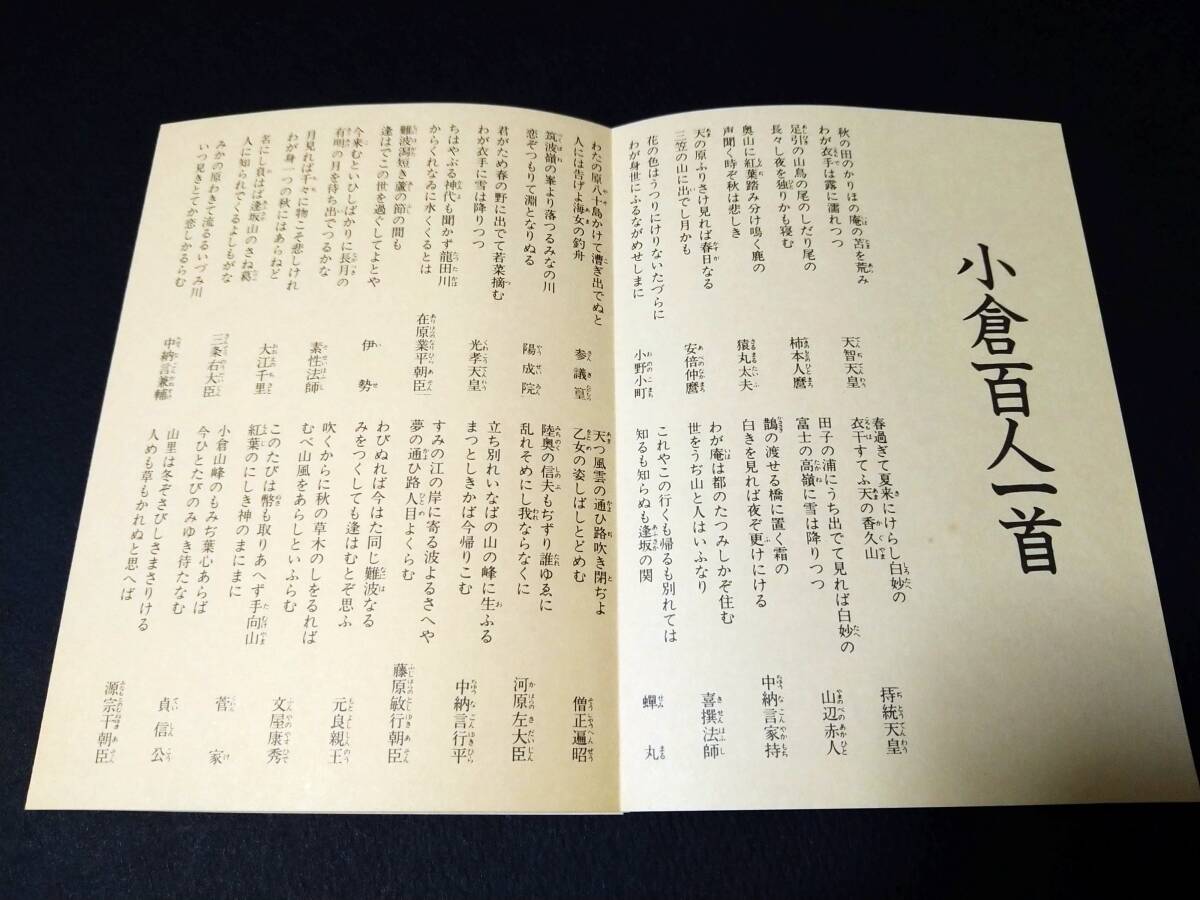 小倉百人一首
秋の田のかりほの庵の苫を荒み
わが衣手は露に濡れつつ
天智天皇
春過ぎて夏来にけらし白妙の
衣干すてふ天の香久山
持統天皇
足引の山鳥の尾のしだり尾の
長々し夜を独りかも寝む
柿本人麿
田子の浦にうち出でて見れば白妙の
富士の高嶺に雪は降りつつ
山辺赤人
奥山に紅葉踏み分け鳴く鹿の
声聞く時ぞ秋は悲しき
猿丸太夫
鵲の渡せる橋に置く霜の
白きを見れば夜ぞ更けにける
中納言家持
天の原ふりさけ見れば春日なる
三笠の山に出でし月かも
安倍仲麿
わが庵は都のたつみしかぞ住む
世をうぢ山と人はいふなり
喜撰法師
花の色はうつりにけりないたづらに
わが身世にふるながめせしまに
小野小町
これやこの行くも帰るも別れては
知るも知らぬも逢坂の関
蟬丸
わたの原八十島かけて漕ぎ出でぬと
人には告げよ海女の釣舟
参議篁
天つ風雲の通ひ路吹き閉ぢよ
乙女の姿しばしとどめむ
僧正遍昭
筑波嶺の峯より落つるみなの川
恋ぞつもりて淵となりぬる
陽成院
陸奥の信夫もぢずり誰ゆゑに
乱れそめにし我ならなくに
河原左大臣
君がため春の野に出でて若菜摘む
わが衣手に雪は降りつつ
光孝天皇
立ち別れいなばの山の峰に生ふる
まつとしきかば今帰りこむ
中納言行平
ちはやぶる神代も聞かず龍田川
からくれなゐに水くくるとは
在原業平朝臣
すみの江の岸に寄る波よるさへや
夢の通ひ路人目よくらむ
藤原敏行朝臣
難波潟短き蘆の節の間も
逢はでこの世を過ぐしてよとや
伊勢
わびぬれば今はた同じ難波なる
みをつくしても逢はむとぞ思ふ
元良親王
今来むといひしばかりに長月の
有明の月を待ち出でつるかな
素性法師
吹くからに秋の草木のしをるれば
むべ山風をあらしといふらむ
文屋康秀
月見れば千々に物こそ悲しけれ
わが身一つの秋にはあらねど
大江千里
このたびは幣も取りあへず手向山
紅葉のにしき神のまにまに
菅家
名にし負はば逢坂山のさね葛
人に知られでくるよしもがな
三条右大臣
小倉山峰のもみぢ葉心あらば
今ひとたびのみゆき待たなむ
貞信公
みかの原わきて流るるいづみ川
いつ見きとてか恋しかるらむ
中納言兼輔
山里は冬ぞさびしさまさりける
人めも草もかれぬと思へば
源宗于朝臣